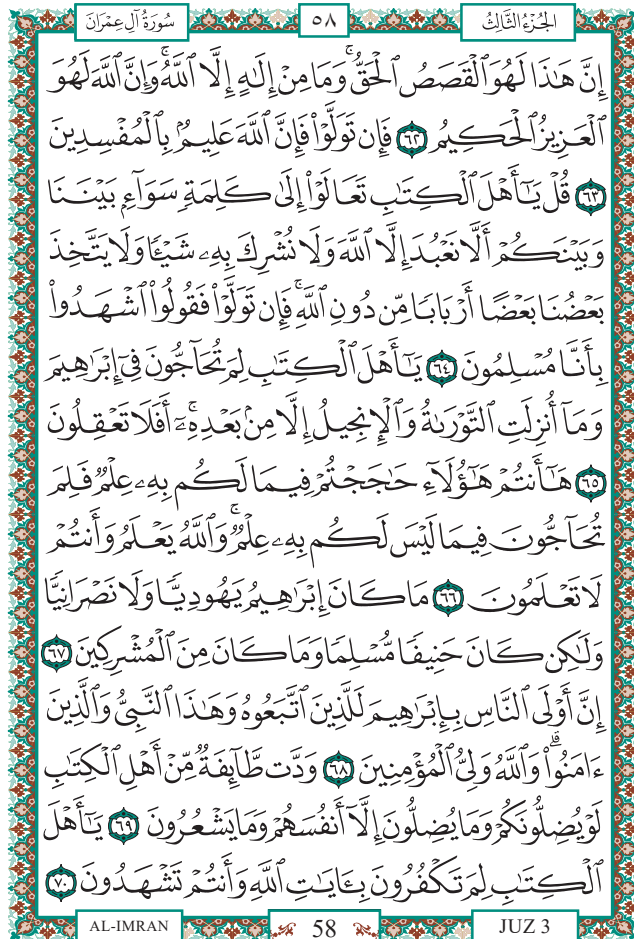 سُورَةُ آلِ عِمْرَانَ ٥٨ الجُزْءُ الثَّالِثُ
إِنَّ هَٰذَا لَهُوَ ٱلْقَصَصُ ٱلْحَقُّ ۚ وَمَا مِنْ إِلَٰهٍ إِلَّا ٱللَّهُ ۚ وَإِنَّ ٱللَّهَ لَهُوَ
ٱلْعَزِيزُ ٱلْحَكِيمُ ٦٢ فَإِن تَوَلَّوْا۟ فَإِنَّ ٱللَّهَ عَلِيمٌۢ بِٱلْمُفْسِدِينَ
٦٣ قُلْ يَٰٓأَهْلَ ٱلْكِتَٰبِ تَعَالَوْا۟ إِلَىٰ كَلِمَةٍ سَوَآءٍۭ بَيْنَنَا
وَبَيْنَكُمْ أَلَّا نَعْبُدَ إِلَّا ٱللَّهَ وَلَا نُشْرِكَ بِهِۦ شَيْـًٔا وَلَا يَتَّخِذَ
بَعْضُنَا بَعْضًا أَرْبَابًا مِّن دُونِ ٱللَّهِ ۚ فَإِن تَوَلَّوْا۟ فَقُولُوا۟ ٱشْهَدُوا۟
بِأَنَّا مُسْلِمُونَ ٦٤ يَٰٓأَهْلَ ٱلْكِتَٰبِ لِمَ تُحَآجُّونَ فِىٓ إِبْرَٰهِيمَ
وَمَآ أُنزِلَتِ ٱلتَّوْرَىٰةُ وَٱلْإِنجِيلُ إِلَّا مِنۢ بَعْدِهِۦٓ ۚ أَفَلَا تَعْقِلُونَ
٦٥ هَٰٓأَنتُمْ هَٰٓؤُلَآءِ حَٰجَجْتُمْ فِيمَا لَكُم بِهِۦ عِلْمٌ فَلِمَ
تُحَآجُّونَ فِيمَا لَيْسَ لَكُم بِهِۦ عِلْمٌ ۚ وَٱللَّهُ يَعْلَمُ وَأَنتُمْ
لَا تَعْلَمُونَ ٦٦ مَا كَانَ إِبْرَٰهِيمُ يَهُودِيًّا وَلَا نَصْرَانِيًّا
وَلَٰكِن كَانَ حَنِيفًا مُّسْلِمًا وَمَا كَانَ مِنَ ٱلْمُشْرِكِينَ ٦٧
إِنَّ أَوْلَى ٱلنَّاسِ بِإِبْرَٰهِيمَ لَلَّذِينَ ٱتَّبَعُوهُ وَهَٰذَا ٱلنَّبِىُّ وَٱلَّذِينَ
ءَامَنُوا۟ ۗ وَٱللَّهُ وَلِىُّ ٱلْمُؤْمِنِينَ ٦٨ وَدَّت طَّآئِفَةٌ مِّنْ أَهْلِ ٱلْكِتَٰبِ
لَوْ يُضِلُّونَكُمْ وَمَا يُضِلُّونَ إِلَّآ أَنفُسَهُمْ وَمَا يَشْعُرُونَ ٦٩ يَٰٓأَهْلَ
ٱلْكِتَٰبِ لِمَ تَكْفُرُونَ بِـَٔايَٰتِ ٱللَّهِ وَأَنتُمْ تَشْهَدُونَ ٧٠
AL-IMRAN 58 JUZ 3